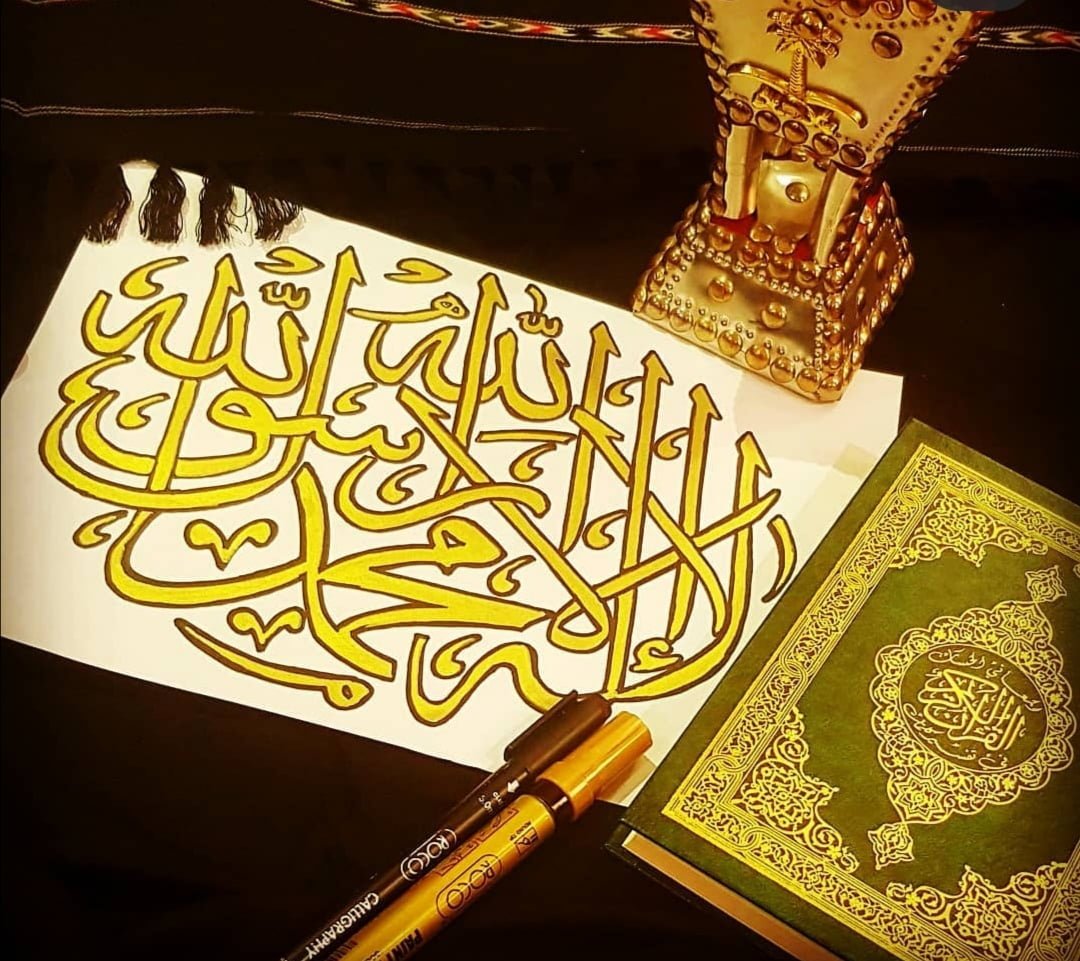 لا إله إلا الله
محمد رسول الله
القرآن الكريم
ROCO
CALLIGRAPHY
ROCO
PAINT